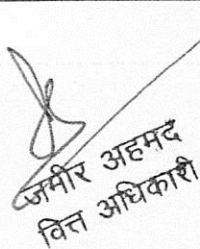 जमीर अहमद
वित्त अधिकारी